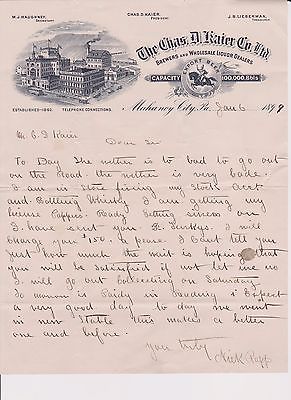 M.J. HAUGHNEY,
SECRETARY.
CHAS. D. KAIER,
PRESIDENT.
J.B. LIEBERMAN,
TREASURER.
The Chas. D. Kaier Co. Ltd.
BREWERS AND WHOLESALE LIQUOR DEALERS
CAPACITY 100,000 Bbls
ESTABLISHED 1862. TELEPHONE CONNECTIONS.
Mahanoy City, Pa. Jan 6 1899
Mr. C D Kaier
Dear Sir
To Day The wether is to bad to go out
on the Road. the wether is very bade.
I am in Store fixing my Stock
and Bottling Whisky I am getting my
Ready Getting
I have sent you 2 Turkys. I will
charge you 1.50. a peace. I Cant tell you
just how much the wait is hopeing that
you will be Satisfied if not let me no
I will go out Collecting on Saturday
To morow is Paidy in & Expect
a very good day to day we went
in new Stable this makes a better
one and before.
your truly
Nick Papp